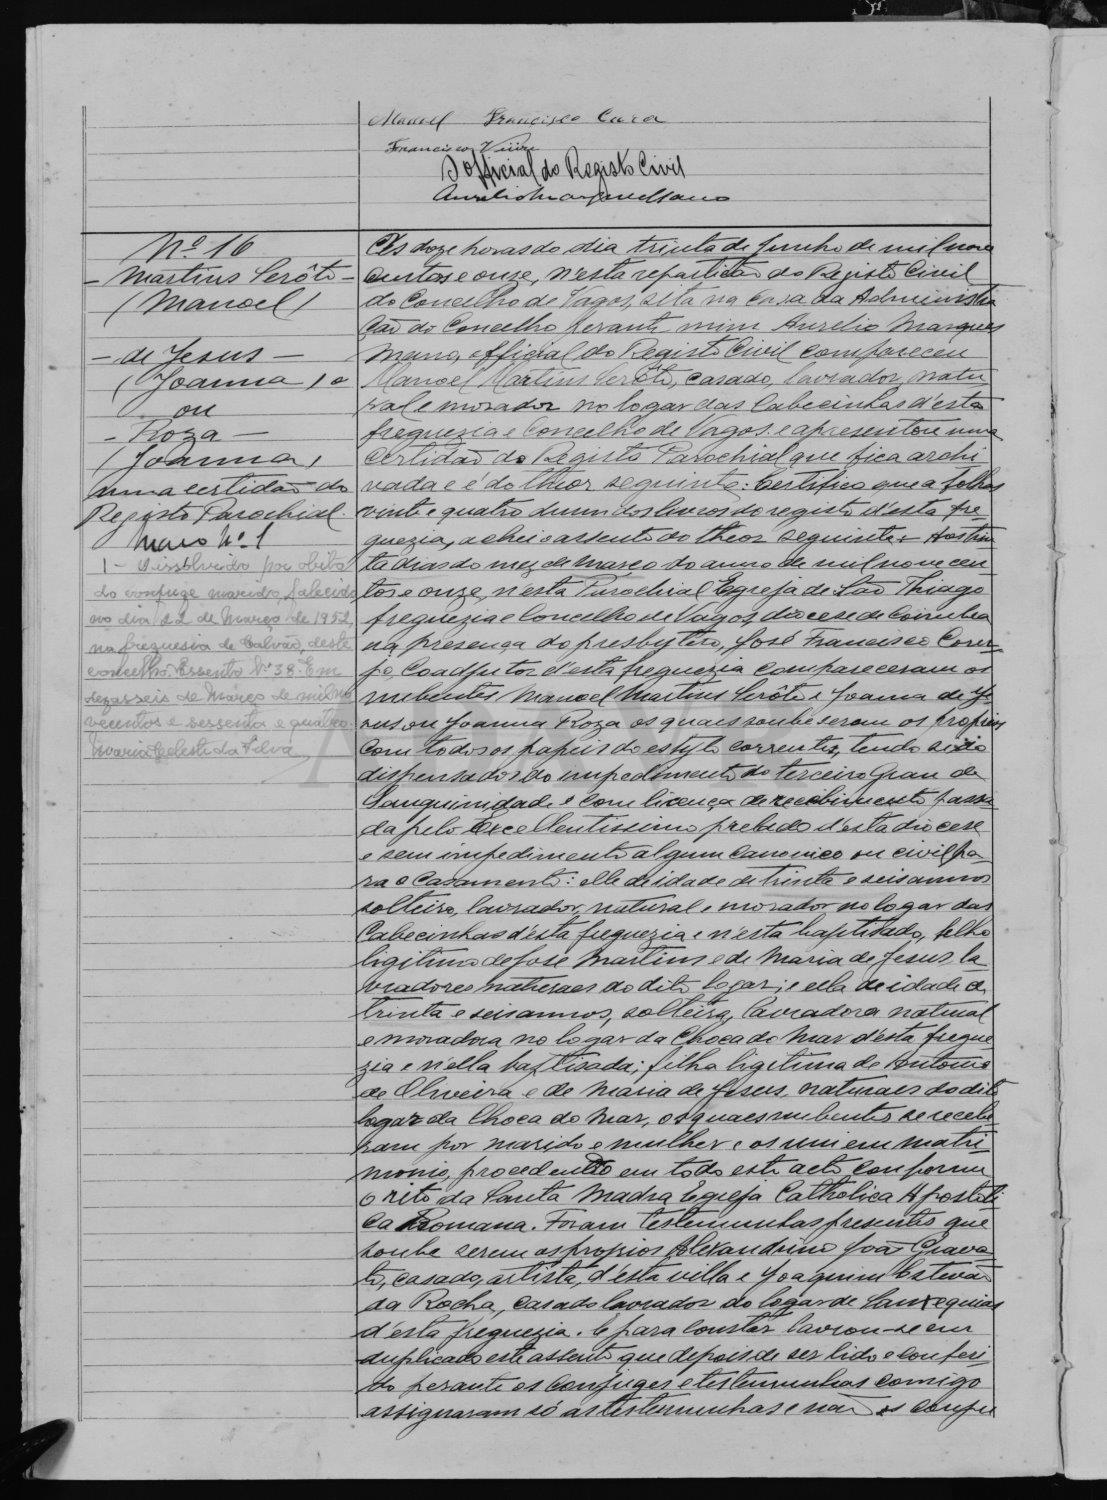 Manoel Francisco Cura
Francisco
O official do Registo Civil
Aurelio Marques Mano
Nº 16
- Martins Serôto -
(Manoel)
- de Jesus -
(Joanna) e
ou
- Roza -
(Joanna)
uma certidão do
Registo Parochial
Maço Nº 1
1 - Dissolvido por obito
do conjuge marido, falecido
no dia 12 de Março de 1952,
na freguesia de Calvão, deste
concelho. Assento Nº 38. Em
dezasseis de Março de mil no
vecentos e sessenta e quatro.
Maria Celeste da Silva
Ás doze horas do dia trinta de Junho de mil nove
centos e onze, n'esta repartição do Registo Civil
do Concelho de Vagos, sita na Casa da Administra
ção do Concelho perante mim Aurelio Marques
Mano, official do Registo Civil compareceu
Manoel Martins Serôto, casado, lavrador, natu-
ral e morador no logar das Cabecinhas d'esta
freguezia e Concelho de Vagos e apresentou uma
certidão do Registo Parochial que fica archi
vada e é do theor seguinte: Certifico que a folhas
vinte e quatro d'um dos livros do registo d'esta fre-
guezia, achei o assento do theor seguinte: Aos trin
ta dias do mez de Março do anno de mil nove cen
tos e onze, n'esta Parochial Egreja de São Thiago
freguezia e Concelho de Vagos, diocese de Coimbra
na presença do presbytero, José Francisco Corr
po, Coadjutor d'esta freguezia compareceram os
nubentes Manoel Martins Serôto e Joanna de Je-
sus ou Joanna Roza os quaes soube serem os proprios
com todos os papeis do estylo correntes, tendo sido
dispensados do impedimento do terceiro grau de
sanguinidade e com licença de recebimento passa
da pelo Excellentissimo prelado d'esta diocese
e sem impedimento algum canonico ou civil pa-
ra o casamento: elle de idade de trinta e seis annos
solteiro, lavrador, natural e morador no logar das
Cabecinhas d'esta freguezia e n'esta baptisado, filho
ligitimo de José Martins e de Maria de Jesus la-
vradores naturaes do dito logar; e ella de idade de
trinta e seis annos, solteira, lavradora natural
e moradora no logar da Choca do Mar d'esta fregue-
zia e n'ella baptisada; filha ligitima de Antonio
de Oliveira e de Maria de Jesus, naturaes do dito
logar da Choca do Mar, os quaes nubentes se recebe-
ram por marido e mulher e os uni em matri-
monio, procedendo em todo este acto conforme
o rito da Santa Madre Egreja Catholica Apostoli-
ca Romana. Foram testemunhas presentes que
soube serem os proprios Alexandrino João Grava-
to, casado, artista, d'esta villa e Joaquim Estevão
da Rocha, casado lavrador do logar de
d'esta freguezia. E para constar lavrou-se em
duplicado este assento que depois de ser lido e conferi-
do perante os conjuges e testemunhas comigo
assignaram só as testemunhas e não os conju